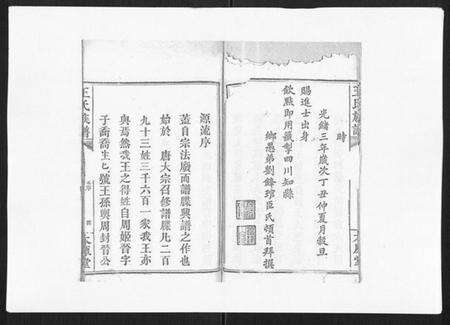 王氏族譜
時
光緒三年歲次丁丑仲夏月穀旦
賜進士出身
欽點即用攝掣四川知縣
鄉愚弟劉鋒琯臣氏頓首拜撰
源流序
蓋自宗法廢而譜牒興譜之作也
始於 唐太宗召修譜牒凡二百
九十三姓三千六百一家我王亦
與焉然我王之得姓自周姬晉字
子喬喬生七號王孫與周封晉公
王氏族譜
序
太原堂